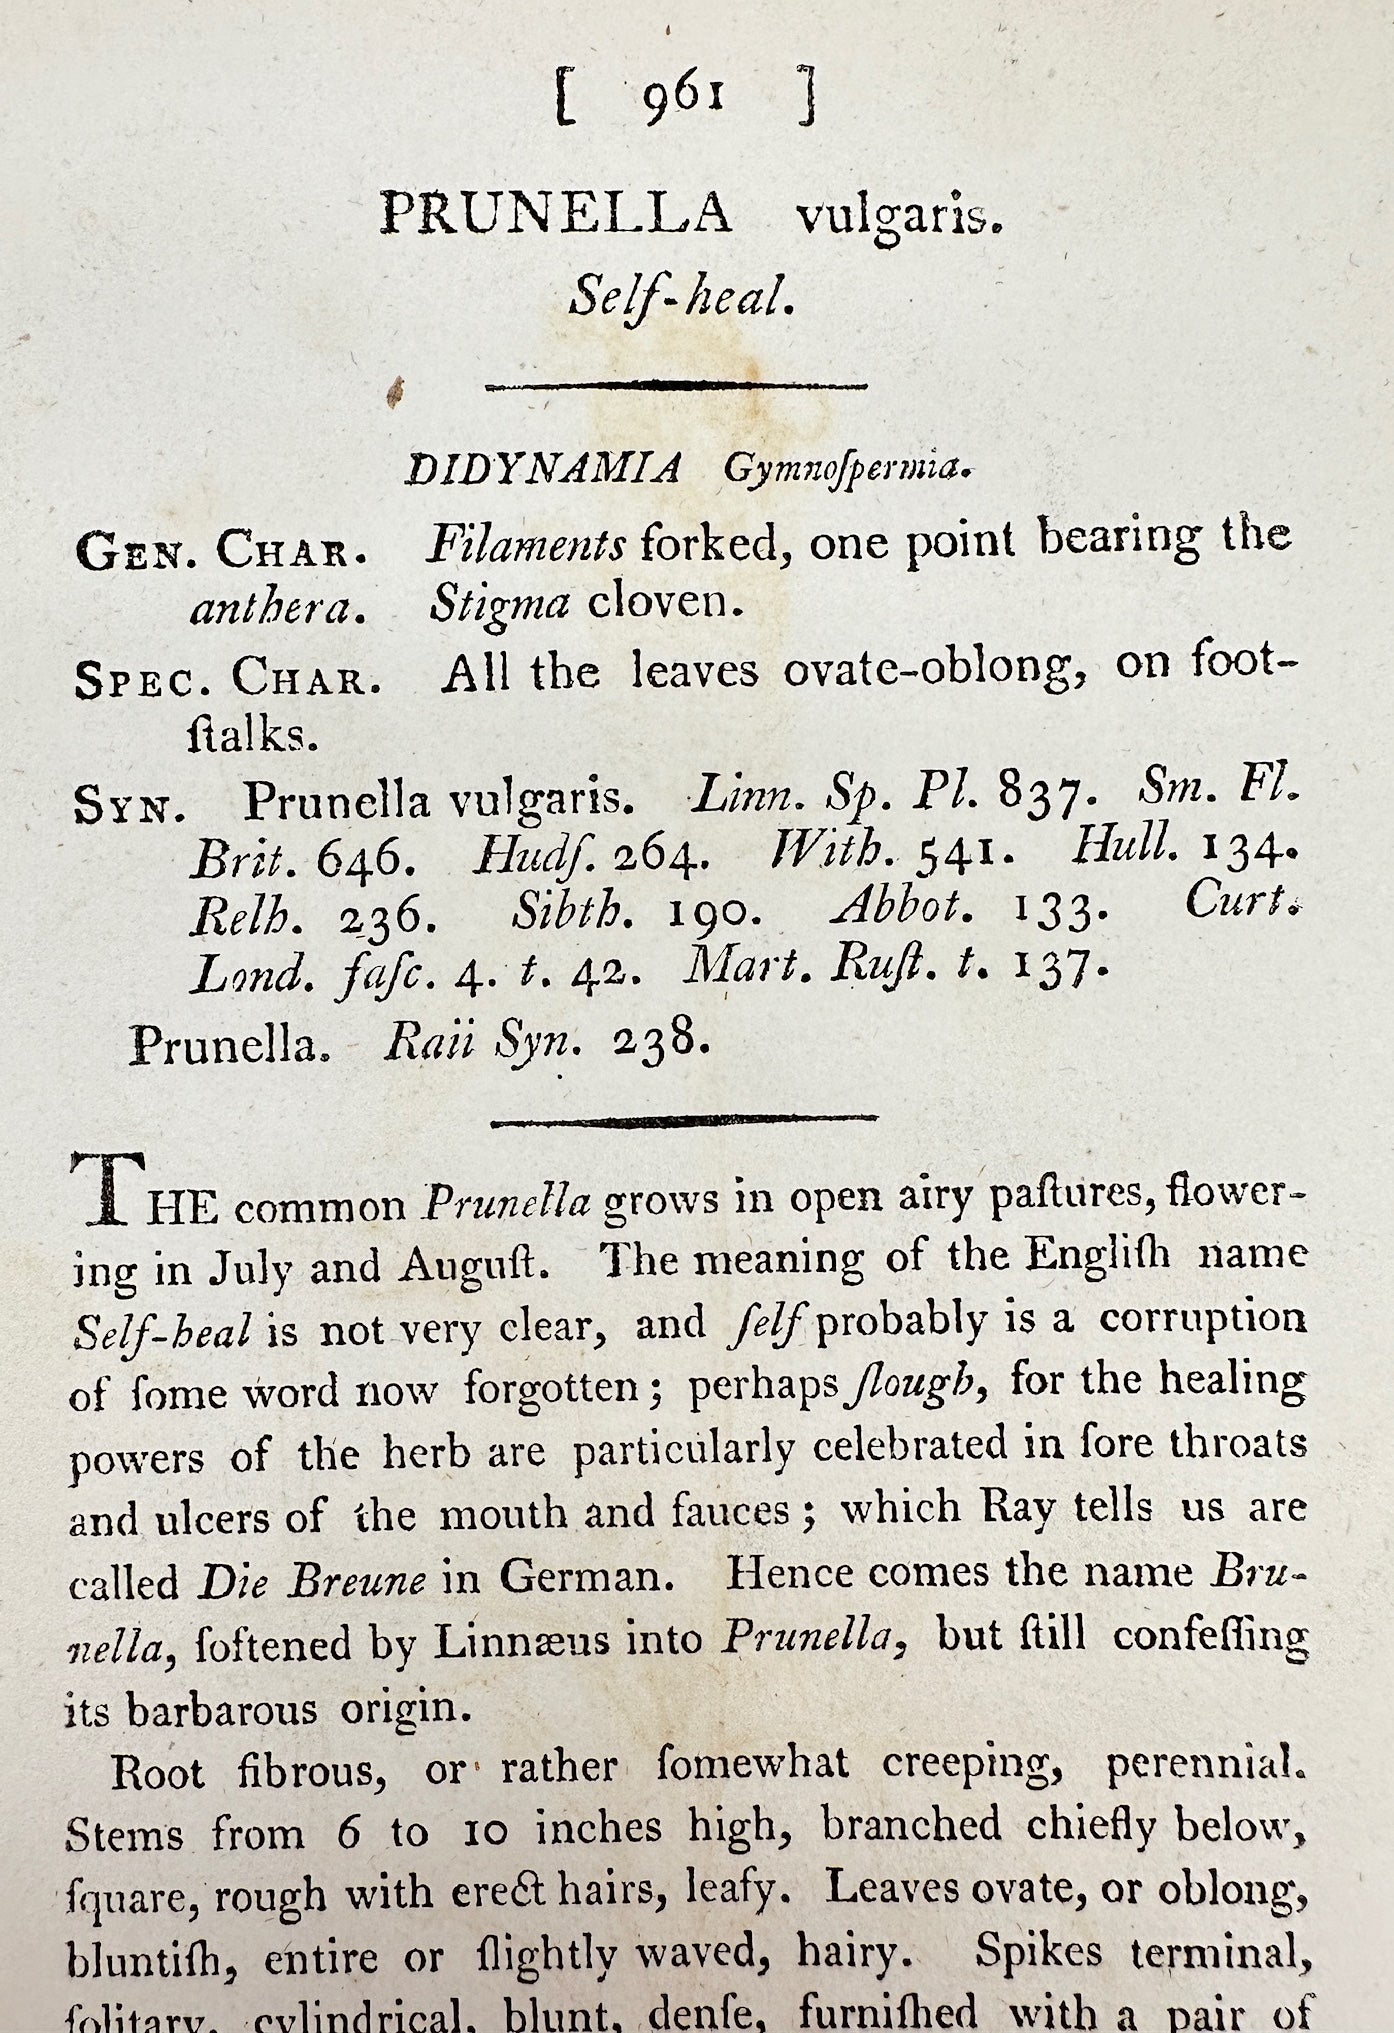 [ 961 ]
PRUNELLA vulgaris.
Self-heal.
DIDYNAMIA Gymnoſpermia.
GEN. CHAR. Filaments forked, one point bearing the
anthera. Stigma cloven.
SPEC. CHAR. All the leaves ovate-oblong, on foot-
ſtalks.
SYN. Prunella vulgaris. Linn. Sp. Pl. 837. Sm. Fl.
Brit. 646. Hudſ. 264. With. 541. Hull. 134.
Relh. 236. Sibth. 190. Abbot. 133. Curt.
Lond. faſc. 4. t. 42. Mart. Ruſt. t. 137.
Prunella. Raii Syn. 238.
THE common Prunella grows in open airy paſtures, flower-
ing in July and Auguſt. The meaning of the Engliſh name
Self-heal is not very clear, and ſelf probably is a corruption
of ſome word now forgotten; perhaps ſlough, for the healing
powers of the herb are particularly celebrated in ſore throats
and ulcers of the mouth and fauces; which Ray tells us are
called Die Breune in German. Hence comes the name Bru-
nella, ſoftened by Linnæus into Prunella, but ſtill confeſſing
its barbarous origin.
Root fibrous, or rather ſomewhat creeping, perennial.
Stems from 6 to 10 inches high, branched chiefly below,
ſquare, rough with erect hairs, leafy. Leaves ovate, or oblong,
bluntiſh, entire or ſlightly waved, hairy. Spikes terminal,
ſolitary, cylindrical, blunt, denſe, furniſhed with a pair of